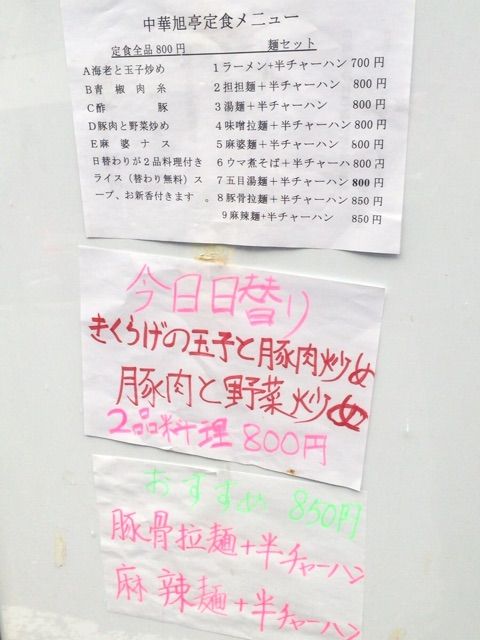 中華旭亭定食メニュー
定食全品800円 麺セット
A海老と玉子炒め 1ラーメン+半チャーハン 700円
B青椒肉糸 2担担麺+半チャーハン 800円
C酢豚 3湯麺+半チャーハン 800円
D豚肉と野菜炒め 4味噌拉麺+半チャーハン 800円
E麻婆ナス 5麻婆麺+半チャーハン 800円
日替わりが2品料理付き 6ウマ煮そば+半チャーハン 800円
ライス(替わり無料)ス 7五目湯麺+半チャーハン 800円
ープ、お新香付きます。 8豚骨拉麺+半チャーハン 850円
9麻辣麺+半チャーハン 850円
今日日替り
きくらげの玉子と豚肉炒め
豚肉と野菜炒め
2品料理 800円
おすすめ 850円
豚骨拉麺+半チャーハン
麻辣麺+半チャーハン